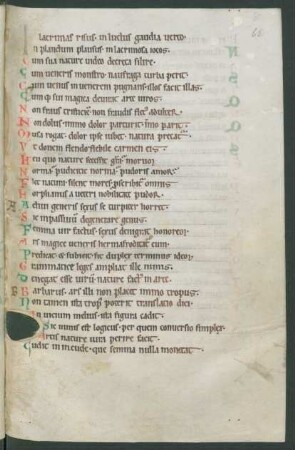 lacrimas risus· in luctus gaudia verto·
n planctum plausus· in lacrimosa iocos·
Cum sua nature video decreta silere·
Cum veneris monstro· naufraga turba perit·
Cum venus in venerem pugnans· illos facit illas·
Cumq sui magica deuirat arte uiros·
Non fraus tristiciem· non fraudis flet᷒ adulter·
Non dolus· immo dolor parturit· imo parit·
usa rogat· dolor ipse iubet· natura precat᷒·
Vt donem flendo flebile carmen eis·
Heu quo nature secessit· gra morum
Norma· pudicicie norma· pudoris amor
Flet natura· silent mores· pscribit᷒ omnis
Orphanus a veteri nobilitate pudor·
Actiui generis sexus se turpiter horret·
Sic in passiuum degenerare genus·
Femina uir factus· sexus denigrat honorem·
Ars magice ueneris hermafroditat eum·
Predicat & subicit· fit duplex terminus idem·
Grammatice leges ampliat ille nimis·
Se negat esse uirū· nature fact᷒ in arte·
Barbarus· ars illi non placet immo tropus·
Non tamen ista tropᵒ poterit translatio dici·
In uicium melius· ista figura cadit·
Hic nimis est logicus· per quem conuersio simplex·
Artis nature iura perire facit·
Cudit in incude· que semina nulla monetat·